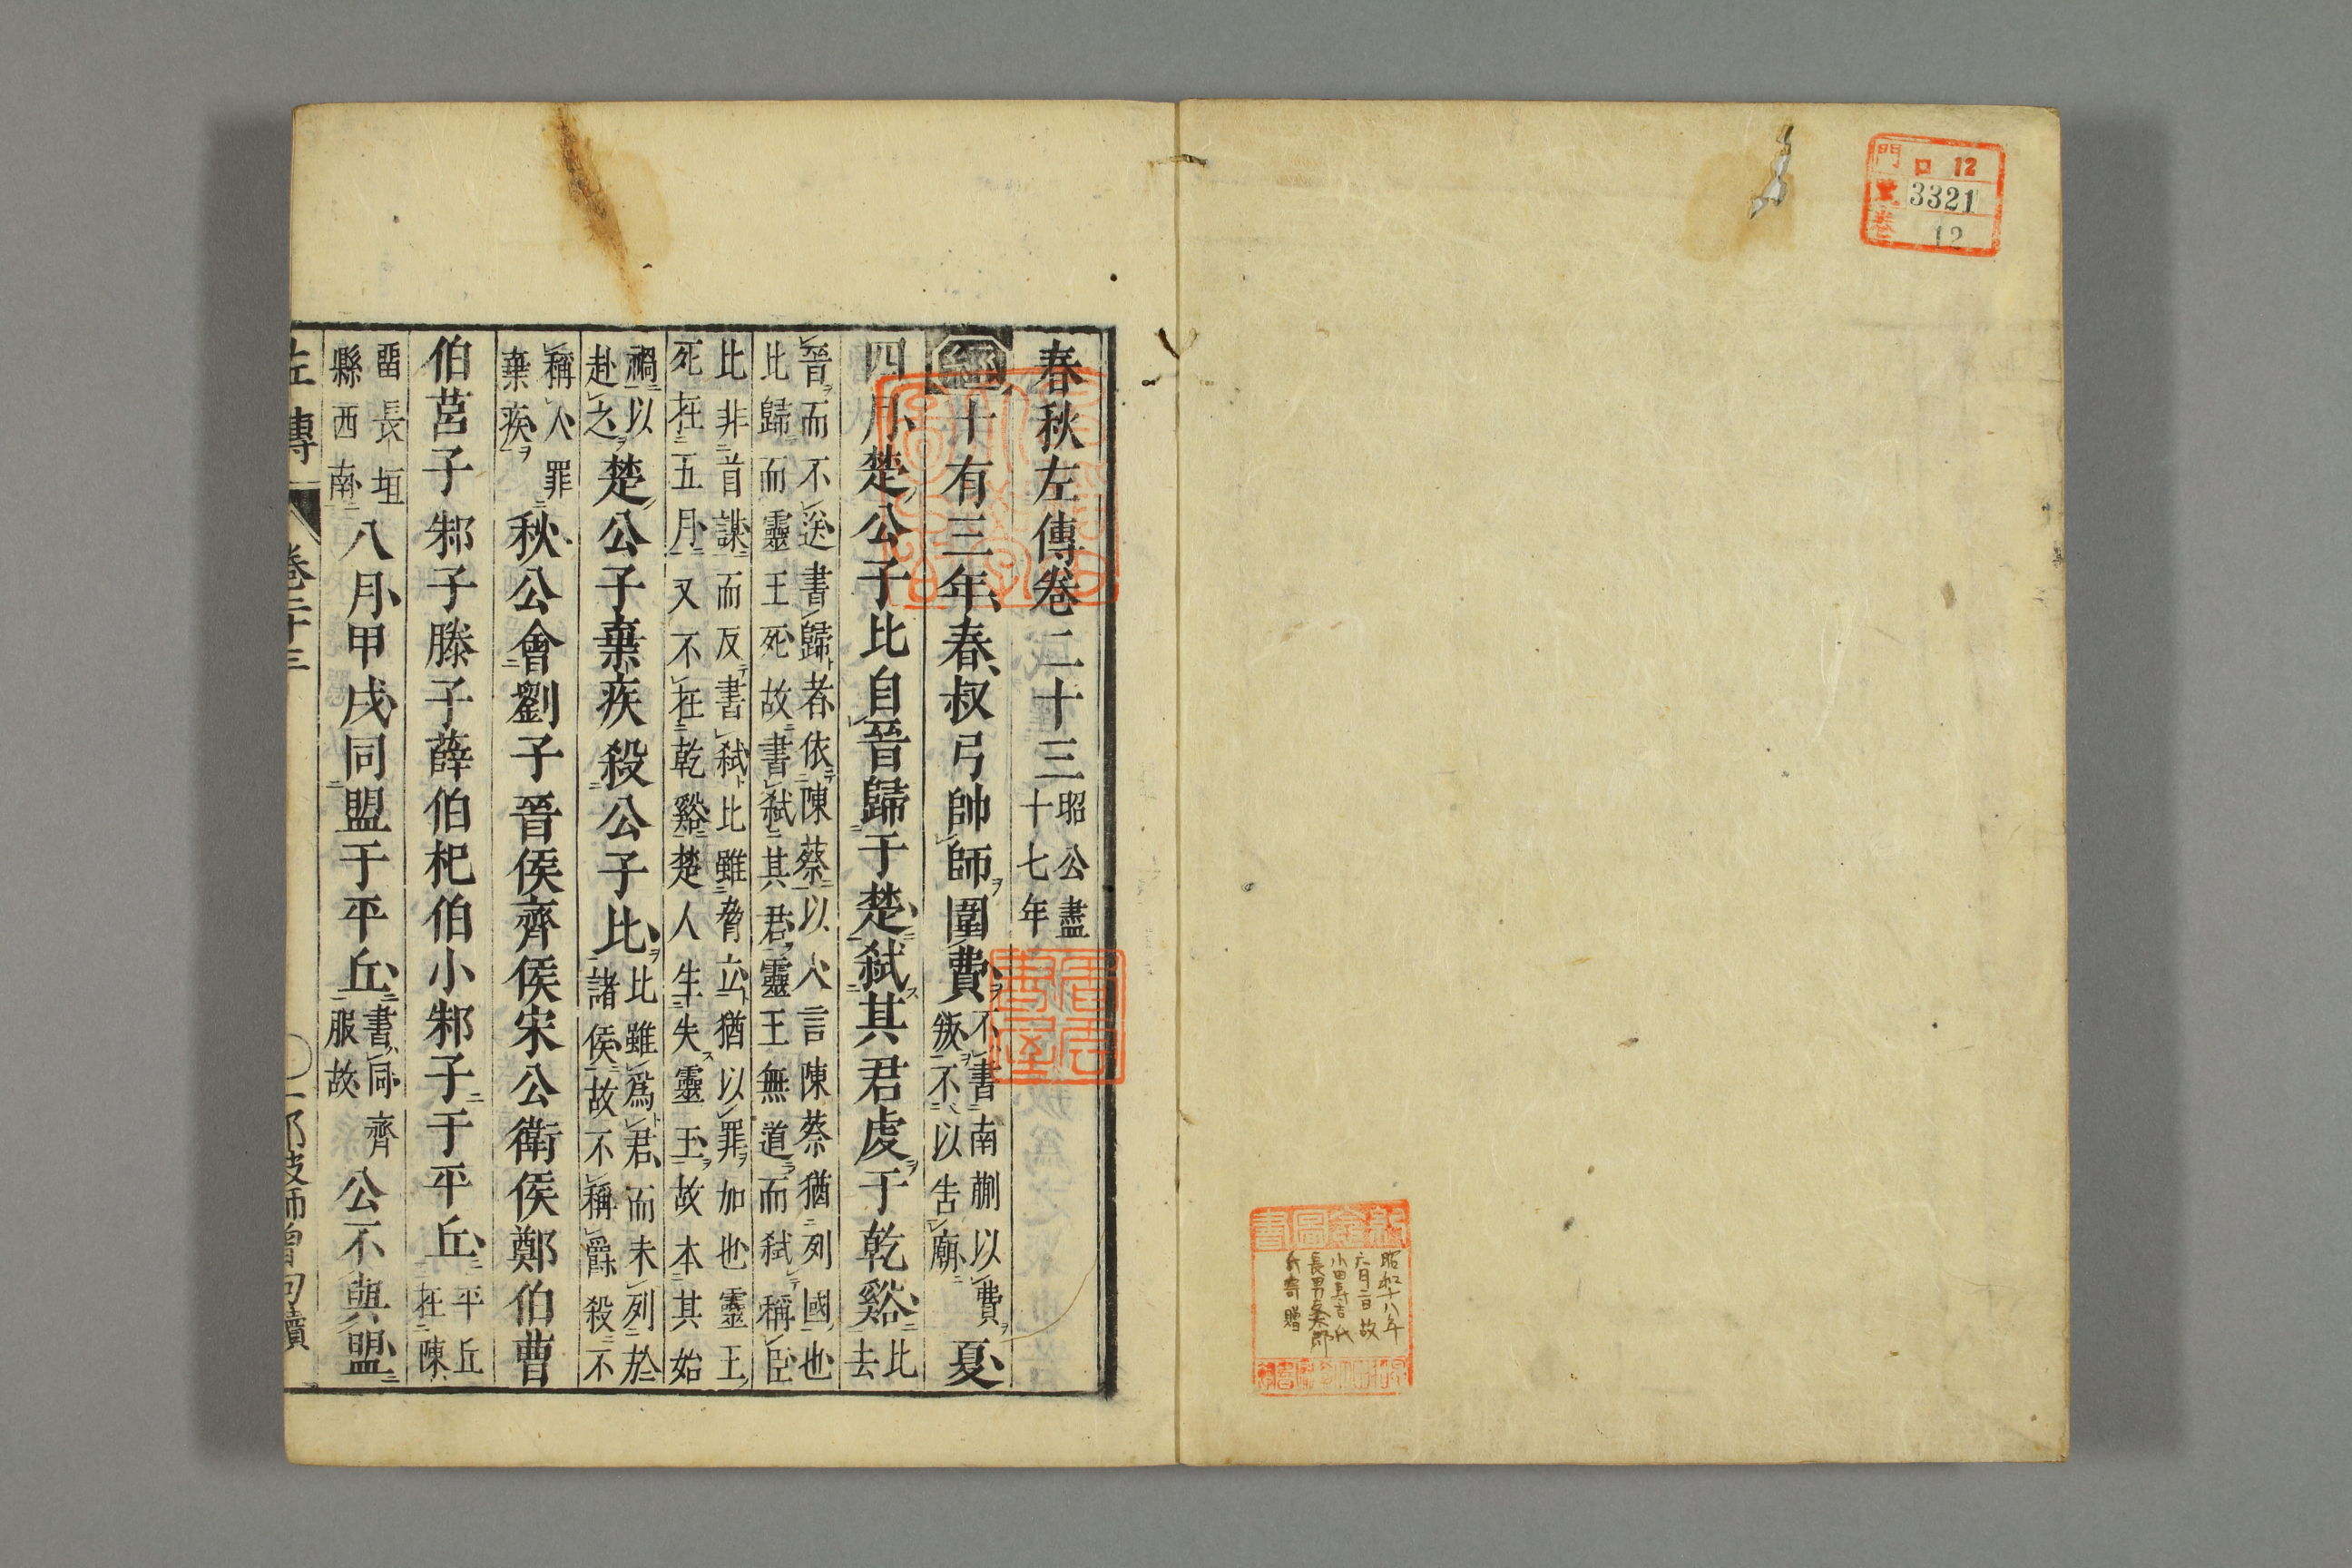 門 口 12
3321
卷 12
昭和十八年
六月二日故
小田寿吉氏
長男
氏寄贈
春秋左傳卷二十三 昭公盡
十七年
經十有三年春叔弓帥師圍費 不書南蒯以費
叛不以告廟 夏
四月楚公子比自晉歸于楚弒其君虔于乾谿 比
去
晉而不送書歸者依陳蔡以入言陳蔡猶列國也
比歸而靈王死故書弒其君靈王無道而弒稱臣
比非首謀而反書弒比雖脅立猶以罪加也靈王
死在五月又不在乾谿楚人生失靈王故本其始
禍以
赴之 楚公子棄疾殺公子比 比雖爲君而未列於
諸侯故不稱爵殺不
稱人罪
棄疾 秋公會劉子晉侯齊侯宋公衛侯鄭伯曹
伯莒子邾子滕子薛伯杞伯小邾子于平丘 平丘
在陳
畱長垣
縣西南 八月甲戌同盟于平丘 書同齊
服故 公不與盟
左傳 卷二十三 一 那波師曾句讀